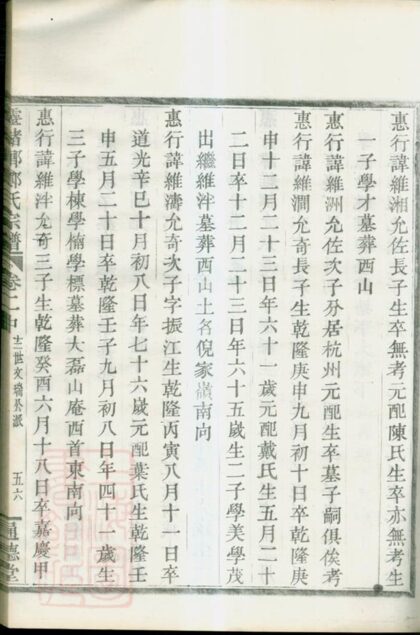 惠行諱維湘允佐長子生卒無考元配陳氏生卒亦無考生
一子學才墓葬西山
惠行諱維洲允佐次子分居杭州元配生卒墓子嗣俱俟考
惠行諱維澗允奇長子生乾隆庚申九月初十日卒乾隆庚
申十二月二十三日年六十一歲元配戴氏生五月二十
二日卒十二月二十三日年六十五歲生二子學美學茂
出繼維泮墓葬西山土名倪家嶺南向
惠行諱維濤允奇次子字振江生乾隆丙寅八月十一日卒
道光辛巳十月初八日年七十六歲元配葉氏生乾隆壬
申五月二十日卒乾隆壬子九月初八日年四十一歲生
三子學棟學楠學標墓葬大磊山庵西首東南向
惠行諱維泮允奇三子生乾隆癸酉六月十八日卒嘉慶甲
鄭氏宗譜
卷二中
五六
通德堂